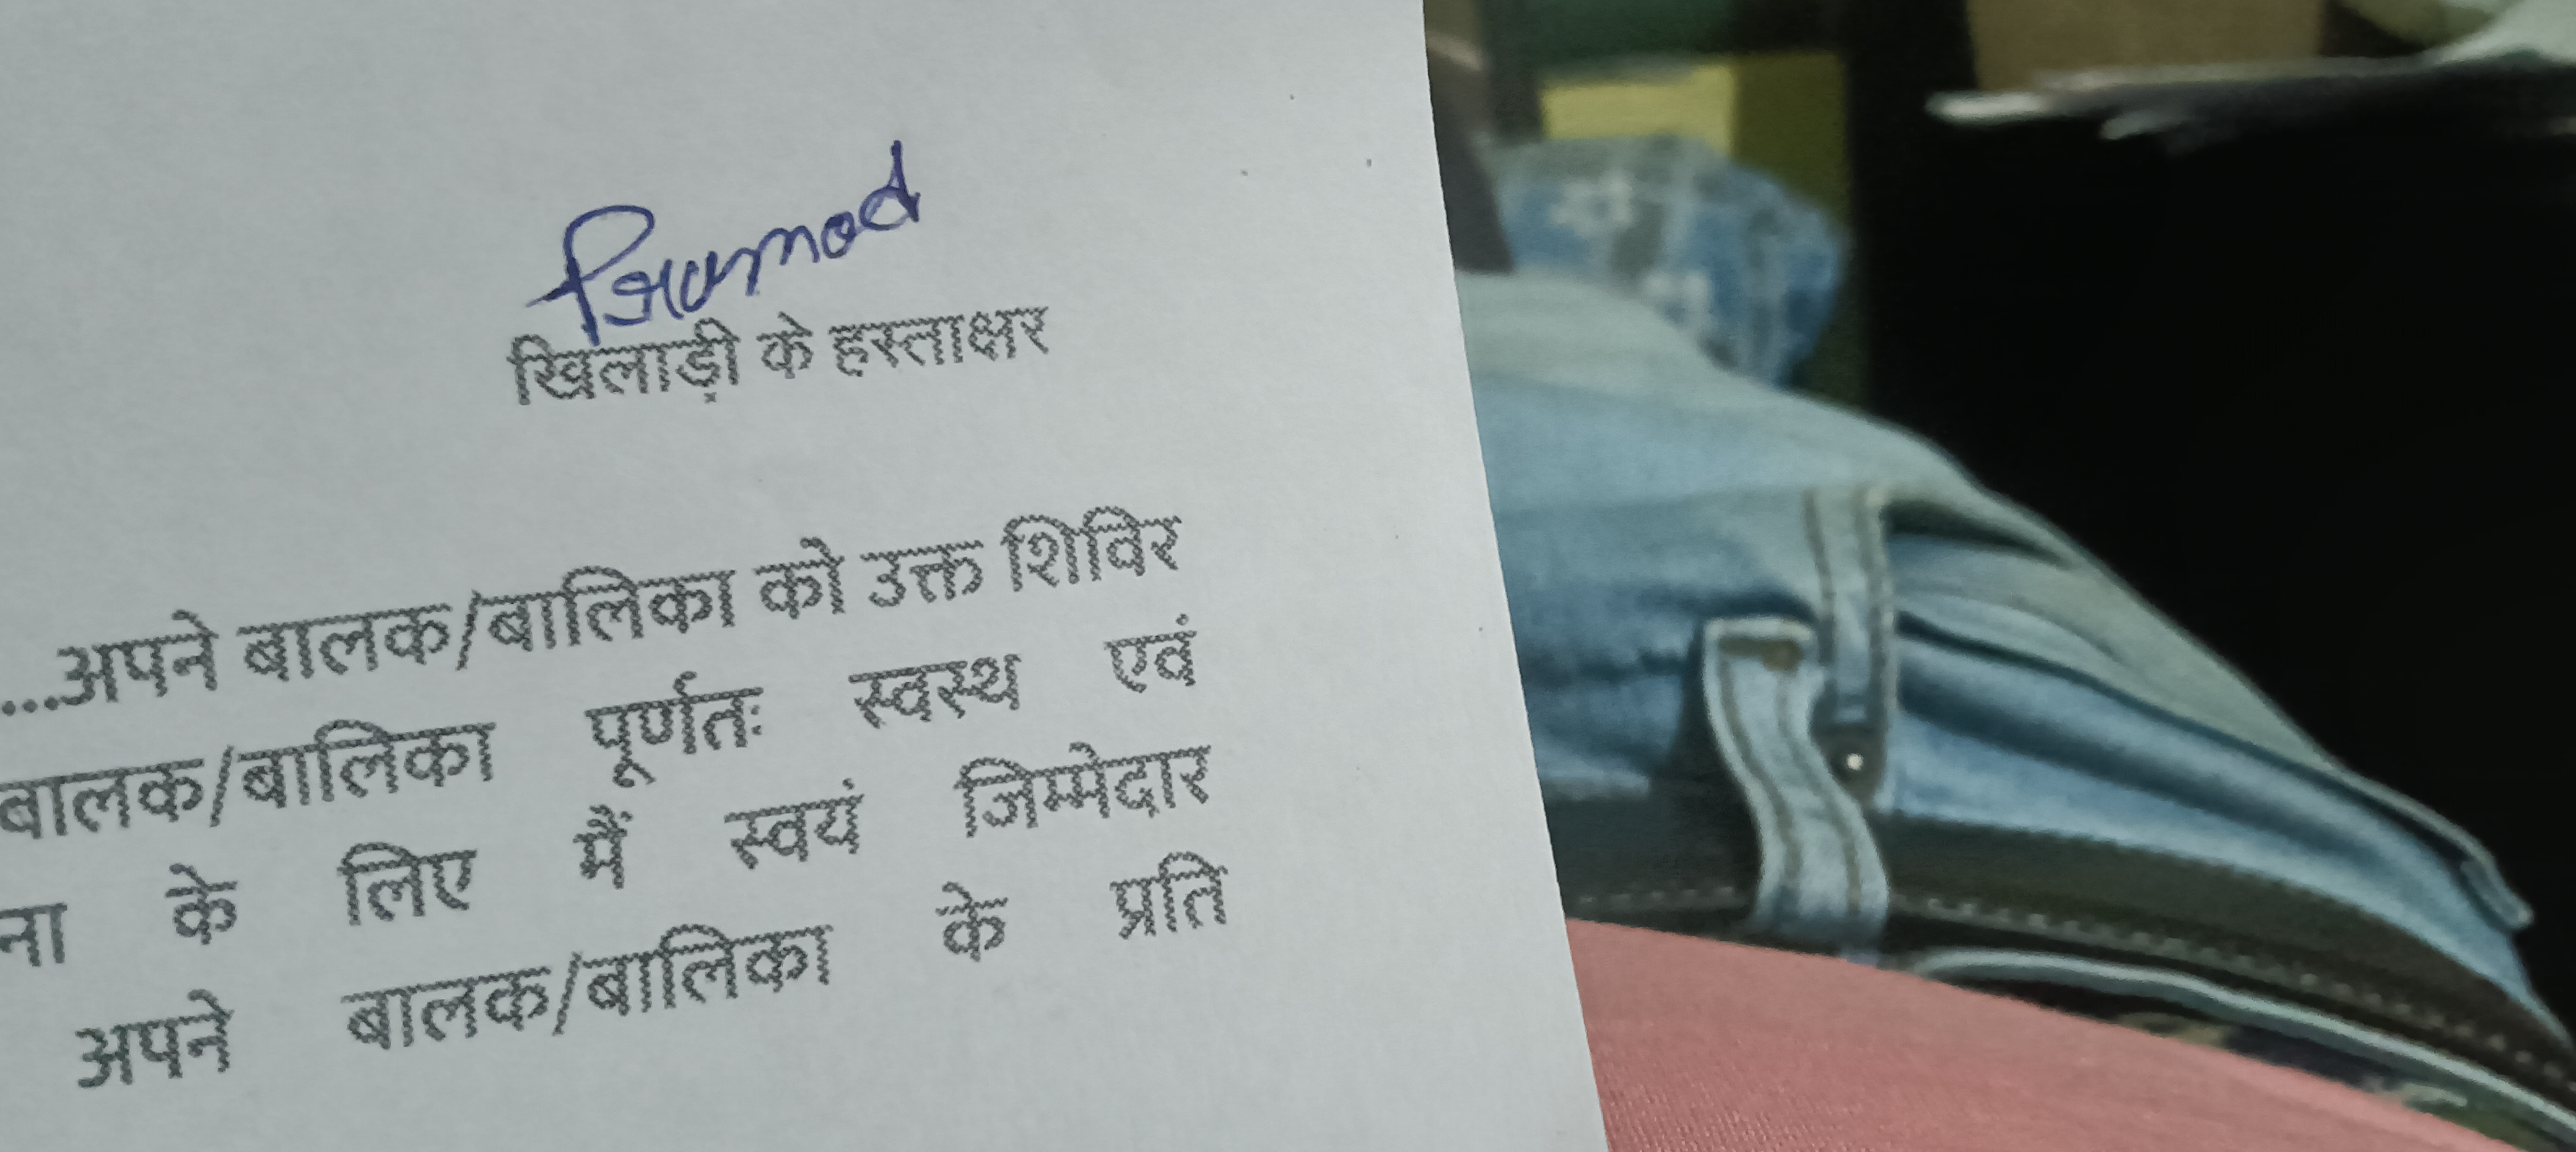 Pramod
खिलाड़ी के हस्ताक्षर
...अपने बालक/बालिका को उक्त शिविर
बालक/बालिका पूर्णतः स्वस्थ एवं
ना के लिए मैं स्वयं जिम्मेदार
अपने बालक/बालिका के प्रति